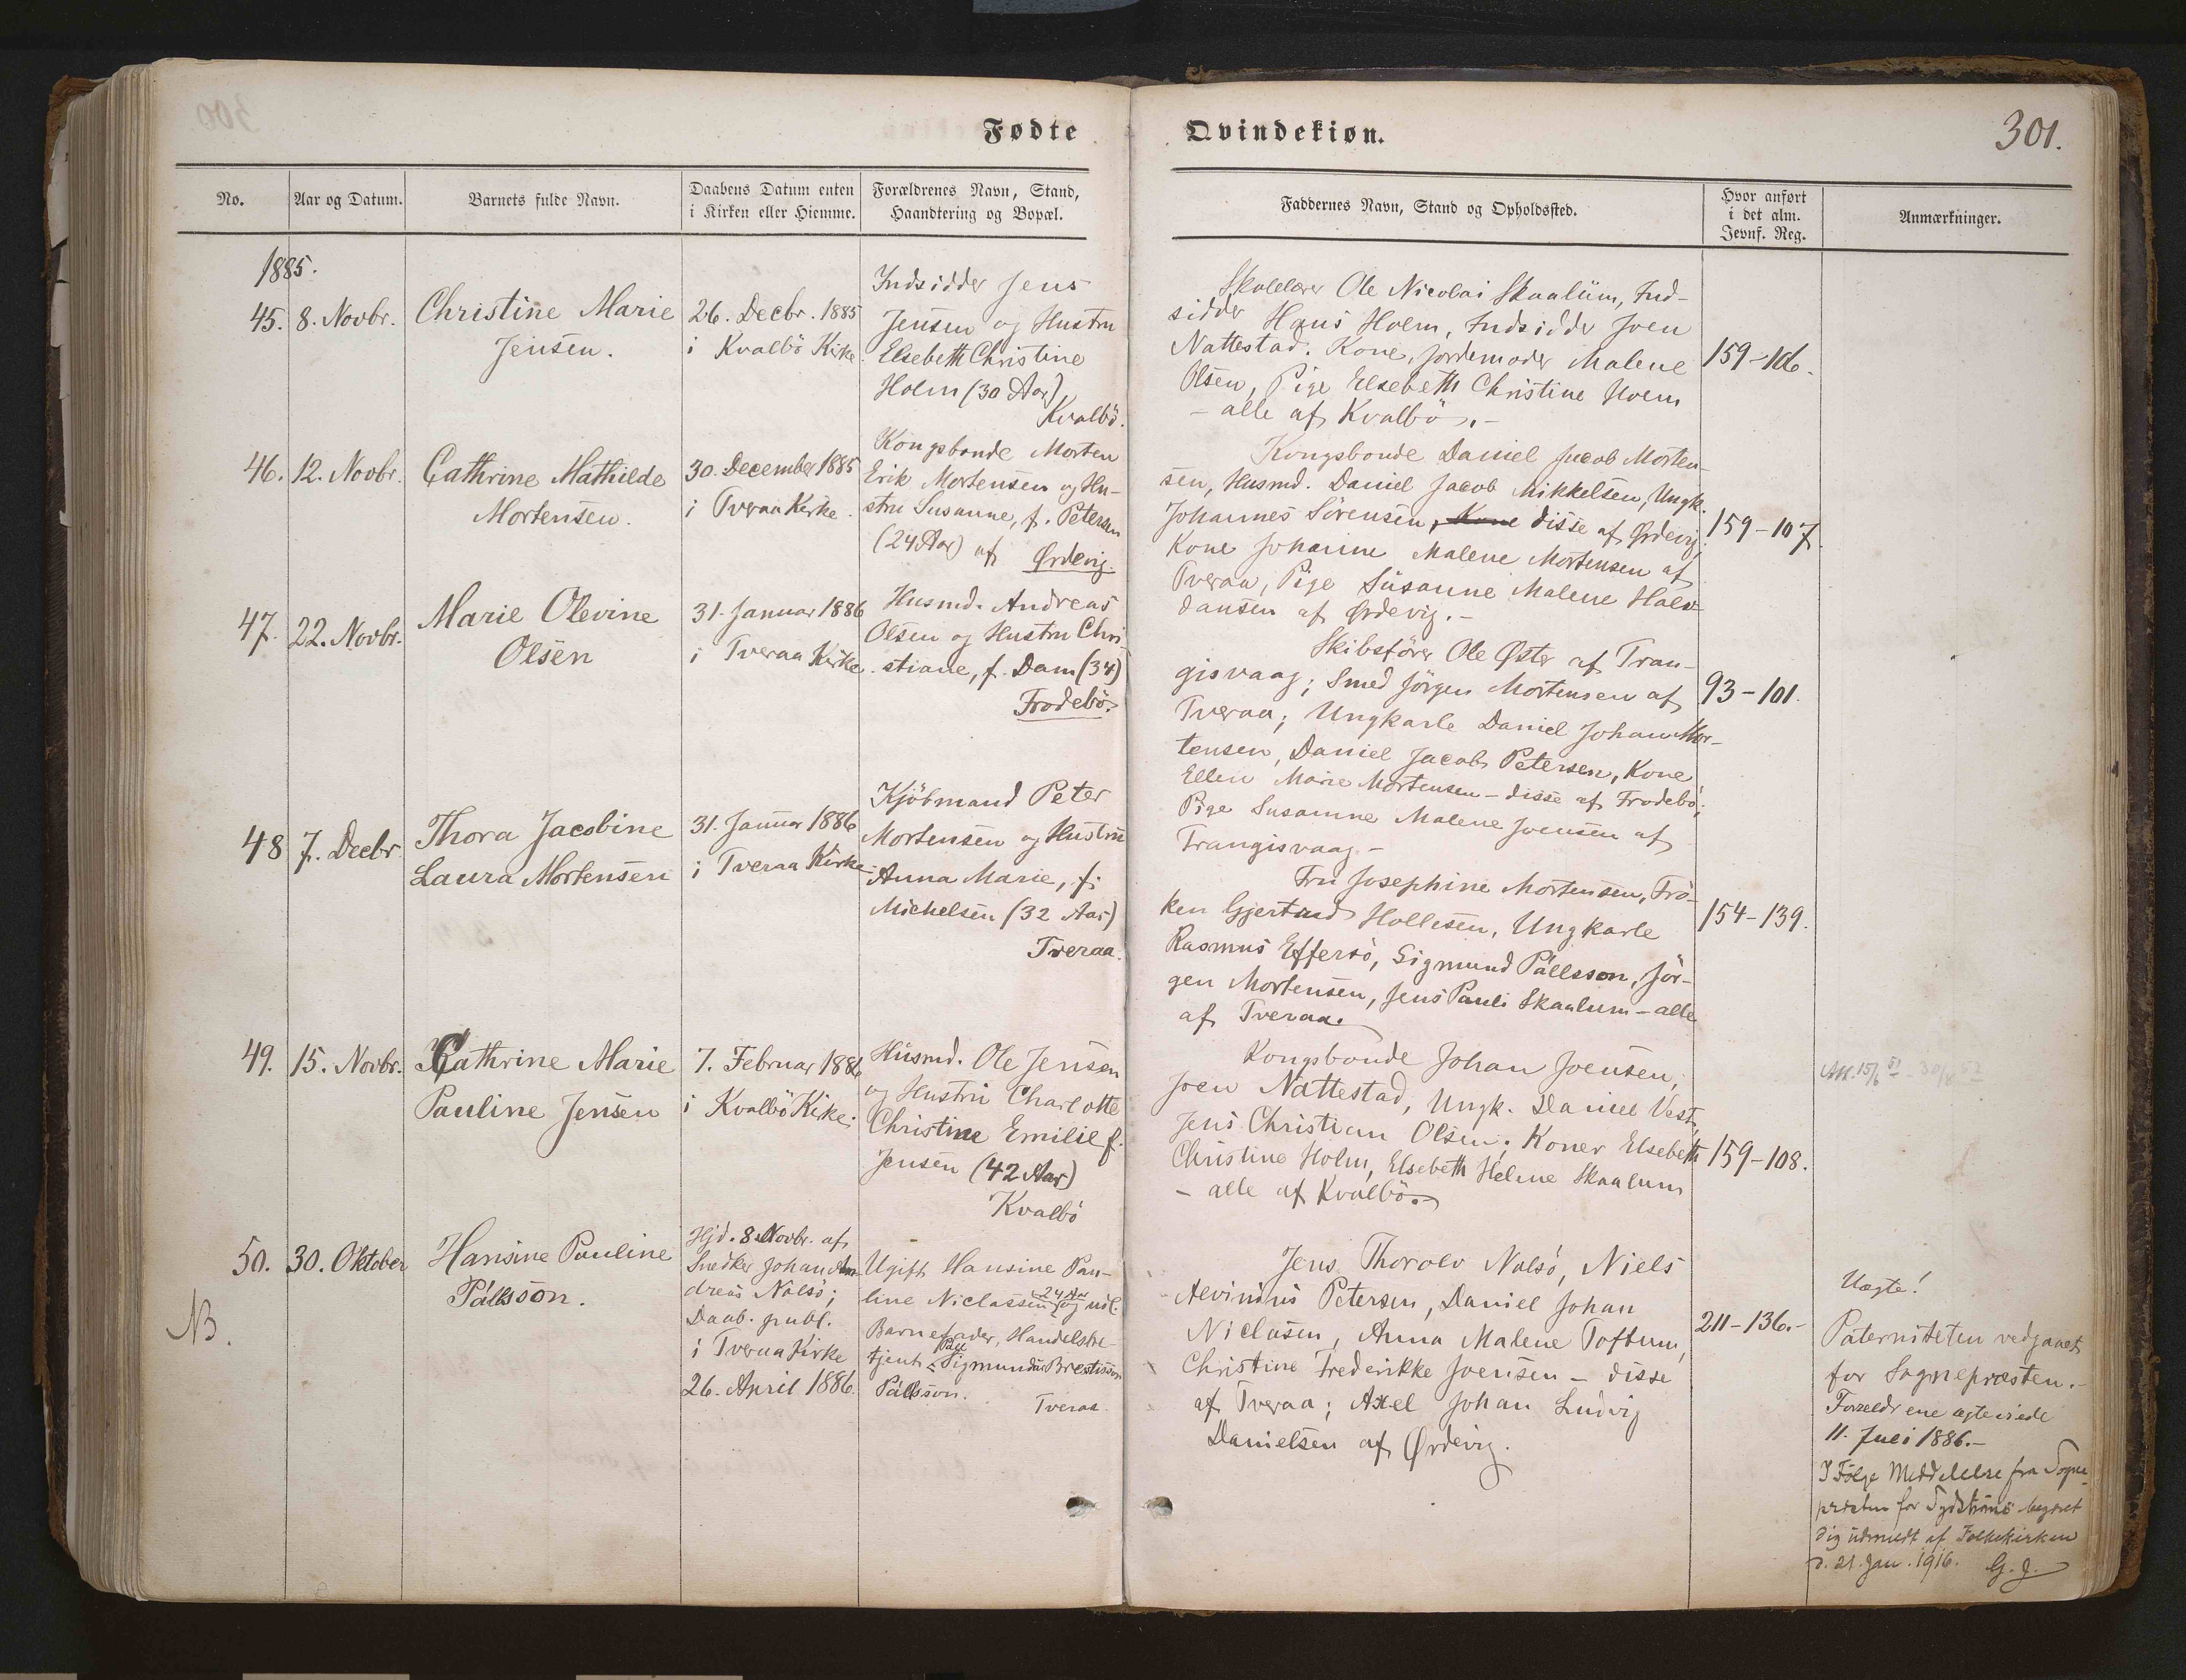 Fødte
Qvindekiøn.
301.
No.
Aar og Datum.
Barnets fulde Navn.
Daabens Datum enten
i Kirken eller Hiemme.
Forældrenes Navn, Stand,
Haandtering og Bopæl.
Faddernes Navn, Stand og Opholdssted.
Hvor anført
i det alm.
Jevnf. Reg.
Anmærkninger.
1885.
45.
8. Novbr.
Christine Marie
Jensen.
26. Decbr. 1885
i Kvalbö Kirke
Indsidder Jens
Jensen og Hustru
Elsebeth Christine
Holm (30 Aar)
Kvalbö.
Skolelærer Ole Nicolai Skaalum, Ind-
sidder Hans Holm, Indsidder Joen
Nattestad. Kone, Jordemoder Malene
Olsen, Pige Elsebeth Christine Holm
- alle af Kvalbö. -
159-106.
46.
12. Novbr.
Cathrine Mathilde
Mortensen.
30. December 1885
i Tveraa Kirke.
Kongsbonde Morten
Erik Mortensen og Hu-
stru Susanne, f. Petersen
(24 Aar) af Ørdevig.
Kongsbonde Daniel Jacob Morten-
sen, Husmd. Daniel Jacob Mikkelsen, Ungk.
Johannes Sörensen, Kone disse af Ørdevig;
Kone Johanne Malene Mortensen af
Tveraa, Pige Susanne Malene Halv-
dansen af Ørdevig. -
159-107.
47.
22. Novbr.
Marie Olevine
Olsen
31. Januar 1886
i Tveraa Kirke.
Husmd. Andreas
Olsen og Hustru Chri-
stiane, f. Dam (34)
Frodebö.
Skibsfører Ole Øster af Tran-
gisvaag; Smed Jörgen Mortensen af
Tveraa; Ungkarle Daniel Johan Mor-
tensen, Daniel Jacob Petersen, Kone
Ellen Marie Mortensen - disse af Frodebö;
Pige Susanne Malene Joensen af
Trangisvaag -
93-101.
48
7. Decbr
Thora Jacobine
Laura Mortensen
31. Januar 1886
i Tveraa Kirke
Kjöbmand Peter
Mortensen og Hustru
Anna Marie, f.
Michelsen (32 Aar)
Tveraa.
Fru Josephine Mortensen, Frö-
ken Gjertrud Hollesen, Ungkarle
Rasmus Effersö, Sigmund Pállsson, Jör-
gen Mortensen, Jens Pauli Skaalum - alle
af Tveraa.
154-139.
49.
15. Novbr.
Cathrine Marie
Pauline Jensen
7. Februar 1886
i Kvalbö Kirke.
Husmd. Ole Jensen
og Hustru Charlotte
Christine Emilie f.
Jensen (42 Aar)
Kvalbö
Kongsbonde Johan Joensen,
Joen Nattestad, Ungk. Daniel Vest,
Jens Christian Olsen; Koner Elsebeth
Christine Holm, Elsebeth Helene Skaalum
- alle af Kvalbö.
159-108.
50.
30. Oktober
Hansine Pauline
Pállsson.
Hjd. 8. Novbr. af
Snedker Johan An-
dreas Nolsö;
Daab. publ.
i Tveraa Kirke
26. April 1886.
Ugift Hansine Pau-
line Niclassen 24 Aar og udl.
Barnefader, Handelsbe-
tjent Páll Sigmundur Brestisson
Pállsson.
Tveraa
Jens Thorolv Nolsö, Niels
Alvinius Petersen, Daniel Johan
Niclasen, Anna Malene Toftum,
Christine Frederikke Joensen - disse
af Tveraa; Axel Johan Ludvig
Danielsen af Ørdevig.
211-136.-
NB.
Uægte!
Paterniteten vedgaaet
for Sognepræsten. -
Forældrene ægteviede
11. Juli 1886. -
I Følge Meddelelse fra Sogne-
præsten for Sydströmö begæret
sig udmeldt af Folkekirken
d. 21. Jan. 1916. G. J.